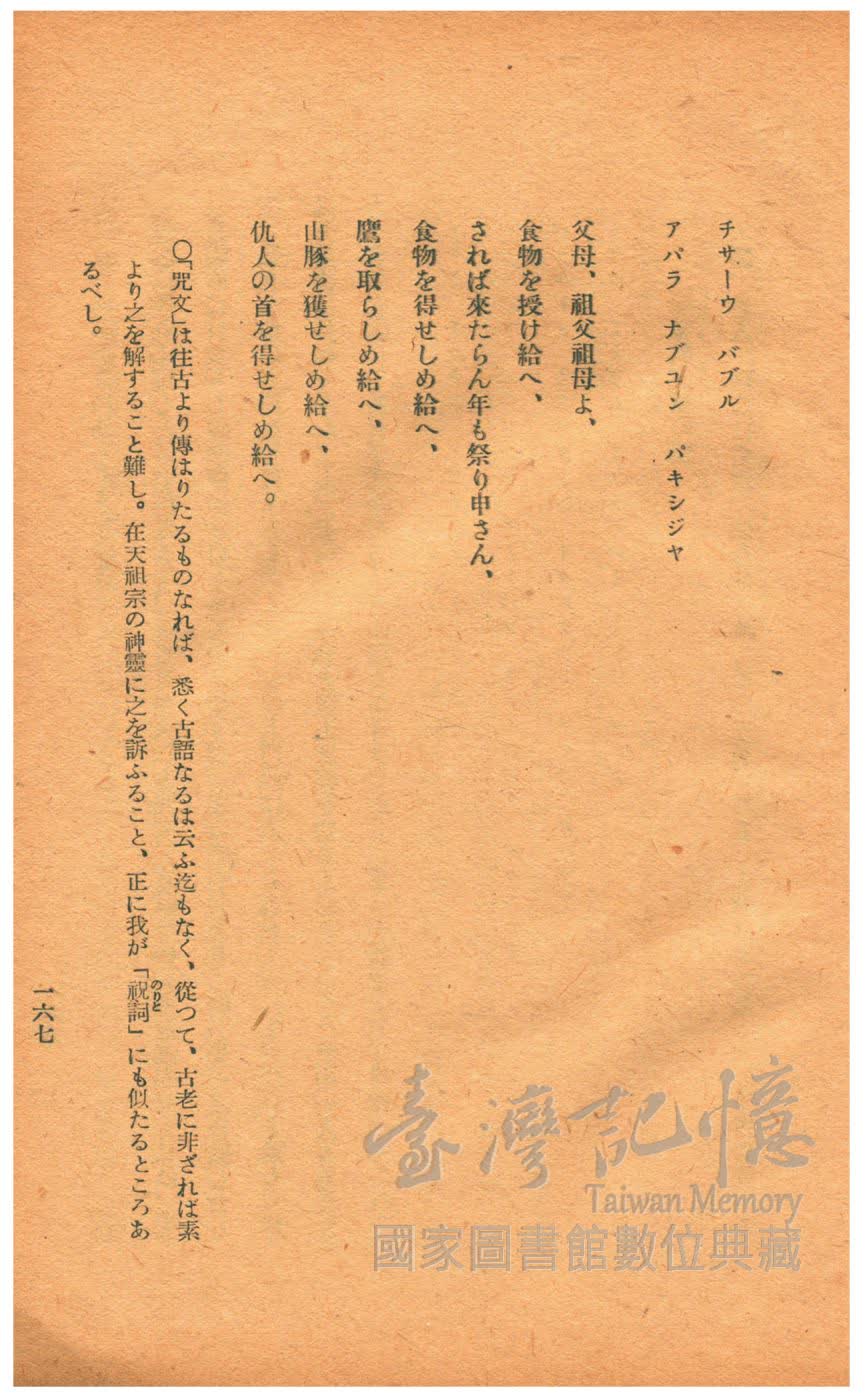 チサーウ　バブル
アパラ　ナブユン　パキシジヤ
父母、祖父祖母よ、
食物を授け給へ、
されば來たらん年も祭り申さん、
食物を得せしめ給へ、
鷹を取らしめ給へ、
山豚を獲せしめ給へ、
仇人の首を得せしめ給へ。
〇「咒文」は往古より傳はりたるものなれば、悉く古語なるは云ふ迄もなく、從つて、古老に非ざれば素
より之を解すること難し。在天祖宗の神靈に之を訴ふること、正に我が「祝詞」にも似たるところあ
のりと
るべし。
一六七
臺灣記憶
Taiwan Memory
國家圖書館數位典藏